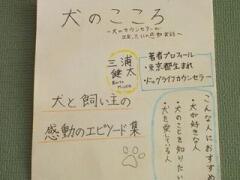 犬のこころ
～犬のカウンセラーが
出会った11の感動実話～
三浦
健太
著者プロフィール
・東京都生まれ
・ドッグライフカウンセラー
犬と飼い主の
感動のエピソード集
こんな人におすすめ
・犬が好きな人
・犬のことを知りたい
・犬を愛している人